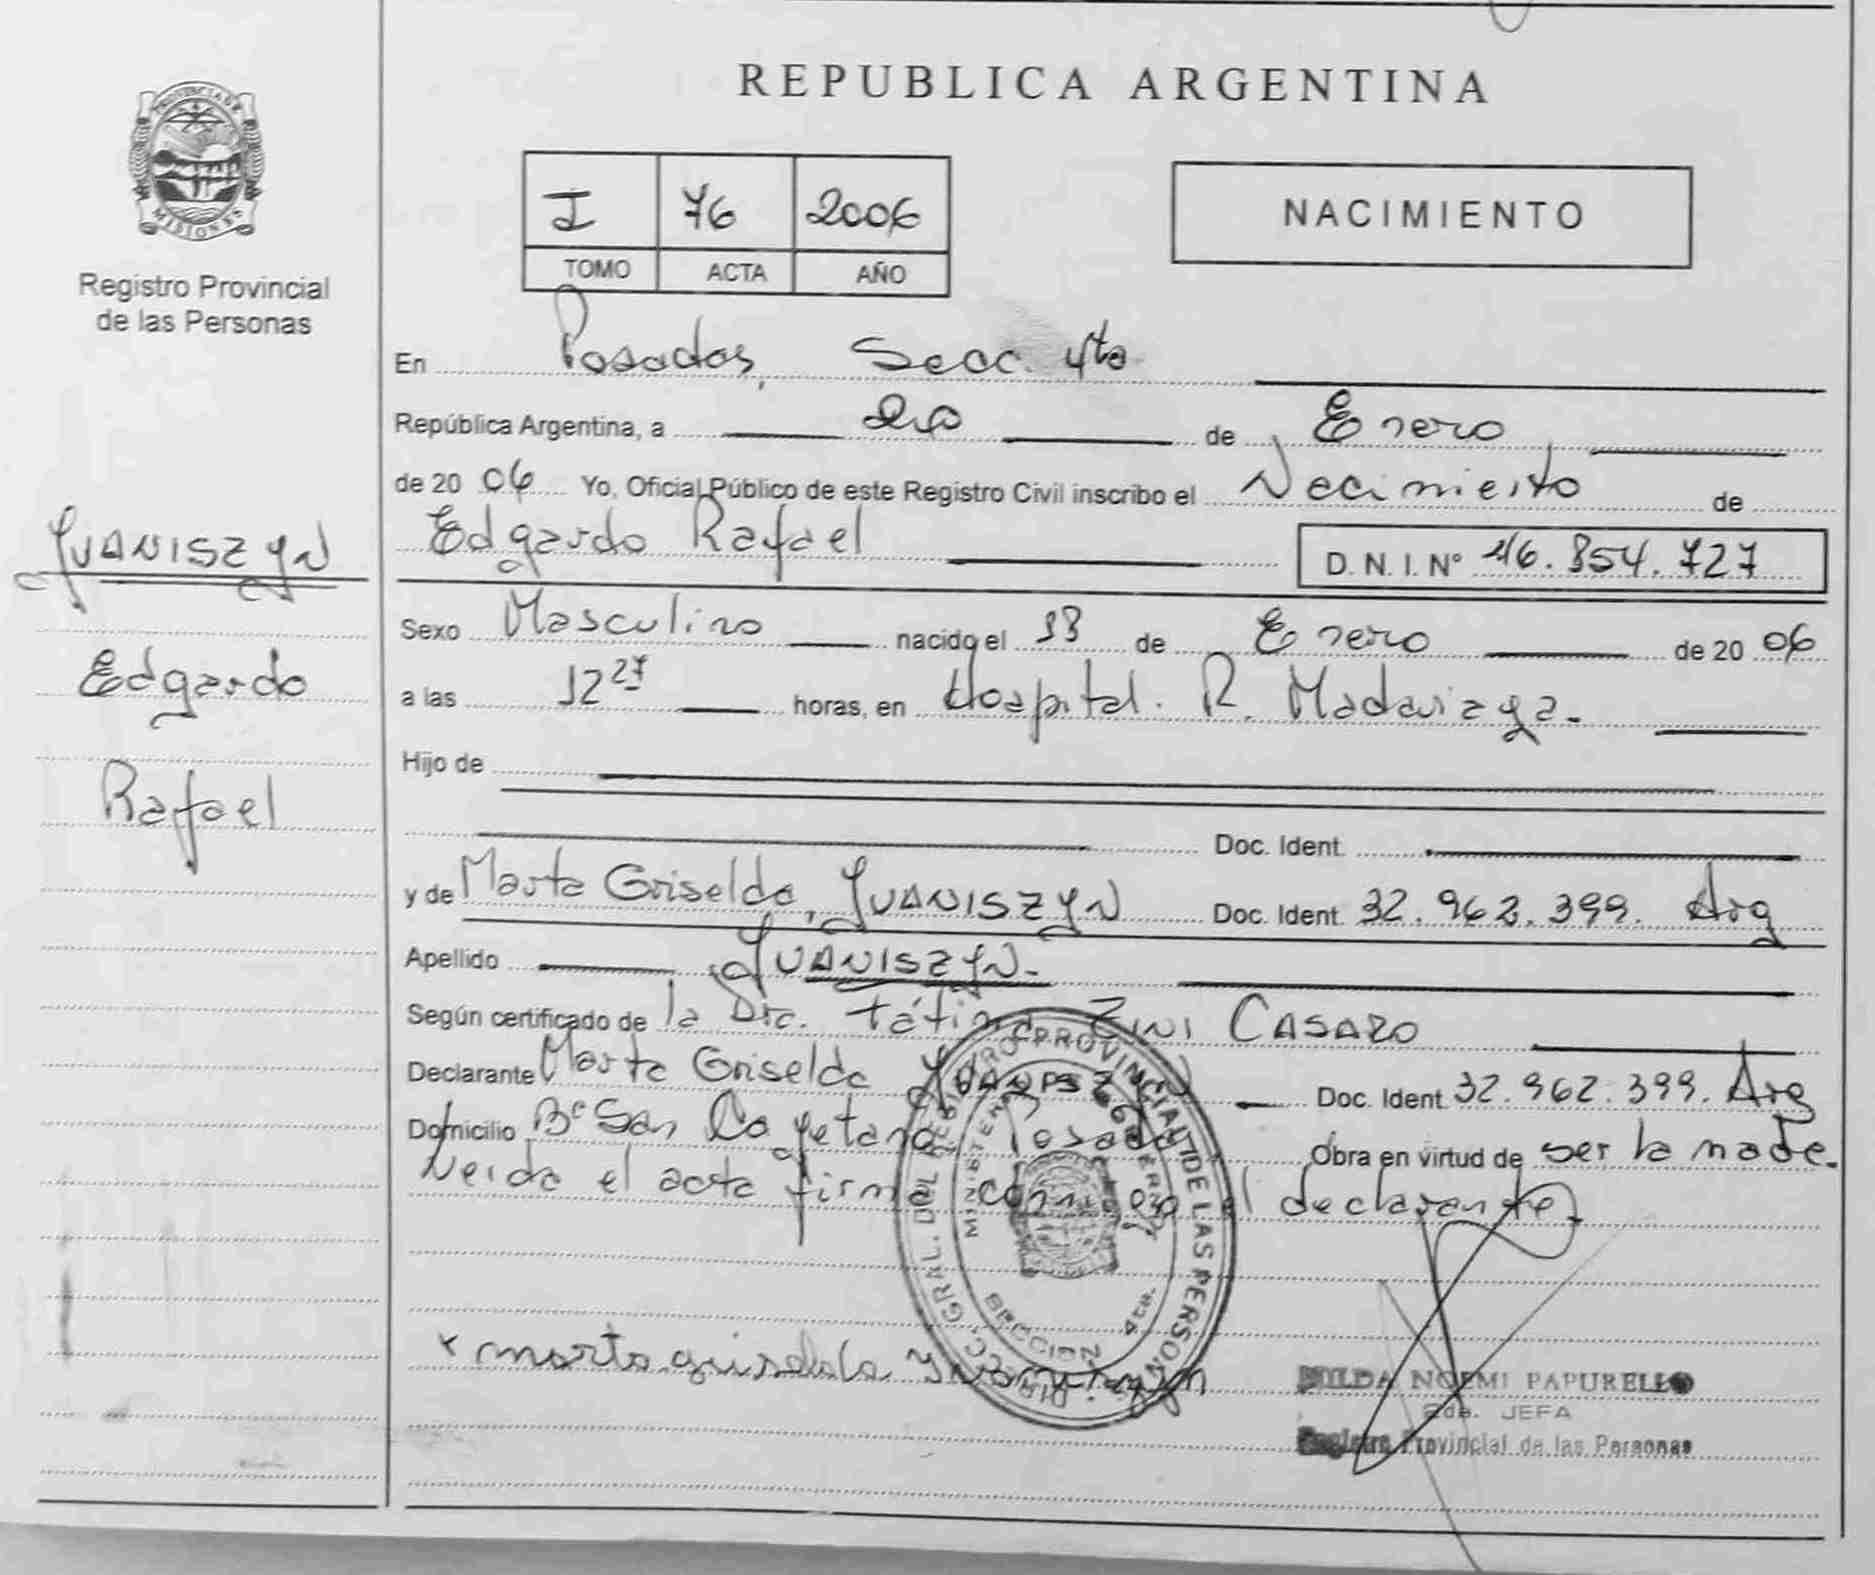 PROVINCIA DE
MISIONES
Registro Provincial
de las Personas
JUANISZYN
Edgardo
Rafael
REPUBLICA ARGENTINA
I 76 2006
TOMO ACTA AÑO
NACIMIENTO
En Posadas, Secc. 4ta
República Argentina, a de Enero
de 20 06 Yo, Oficial Público de este Registro Civil inscribo el Nacimiento de
Edgardo Rafael D. N. I. Nº 46.854.727
Sexo Masculino nacido el 13 de Enero de 20 06
a las 12 27 horas, en Hospital. R. Madariaga.
Hijo de
Doc. Ident.
y de Marta Griselda, JUANISZYN Doc. Ident. 32.962.399. Arg
Apellido JUANISZYN.
Según certificado de la Dra. Tátina ZINI CASARO
Declarante Marta Griselda JUANISZYN Doc. Ident. 32.962.399. Arg
Domicilio Bº San Cayetano Posadas Obra en virtud de ser la madre.
Leida el acta firma conmigo el declarante
DIRECC. GRAL. DEL REGISTRO PROVINCIAL DE LAS PERSONAS
MINISTERIO DE GOBIERNO
SECCION 4ta.
x marta griselda Juaniszyn
HILDA NOEMI PAPURELLO
Eda. JEFA
Registro Provincial de las Personas